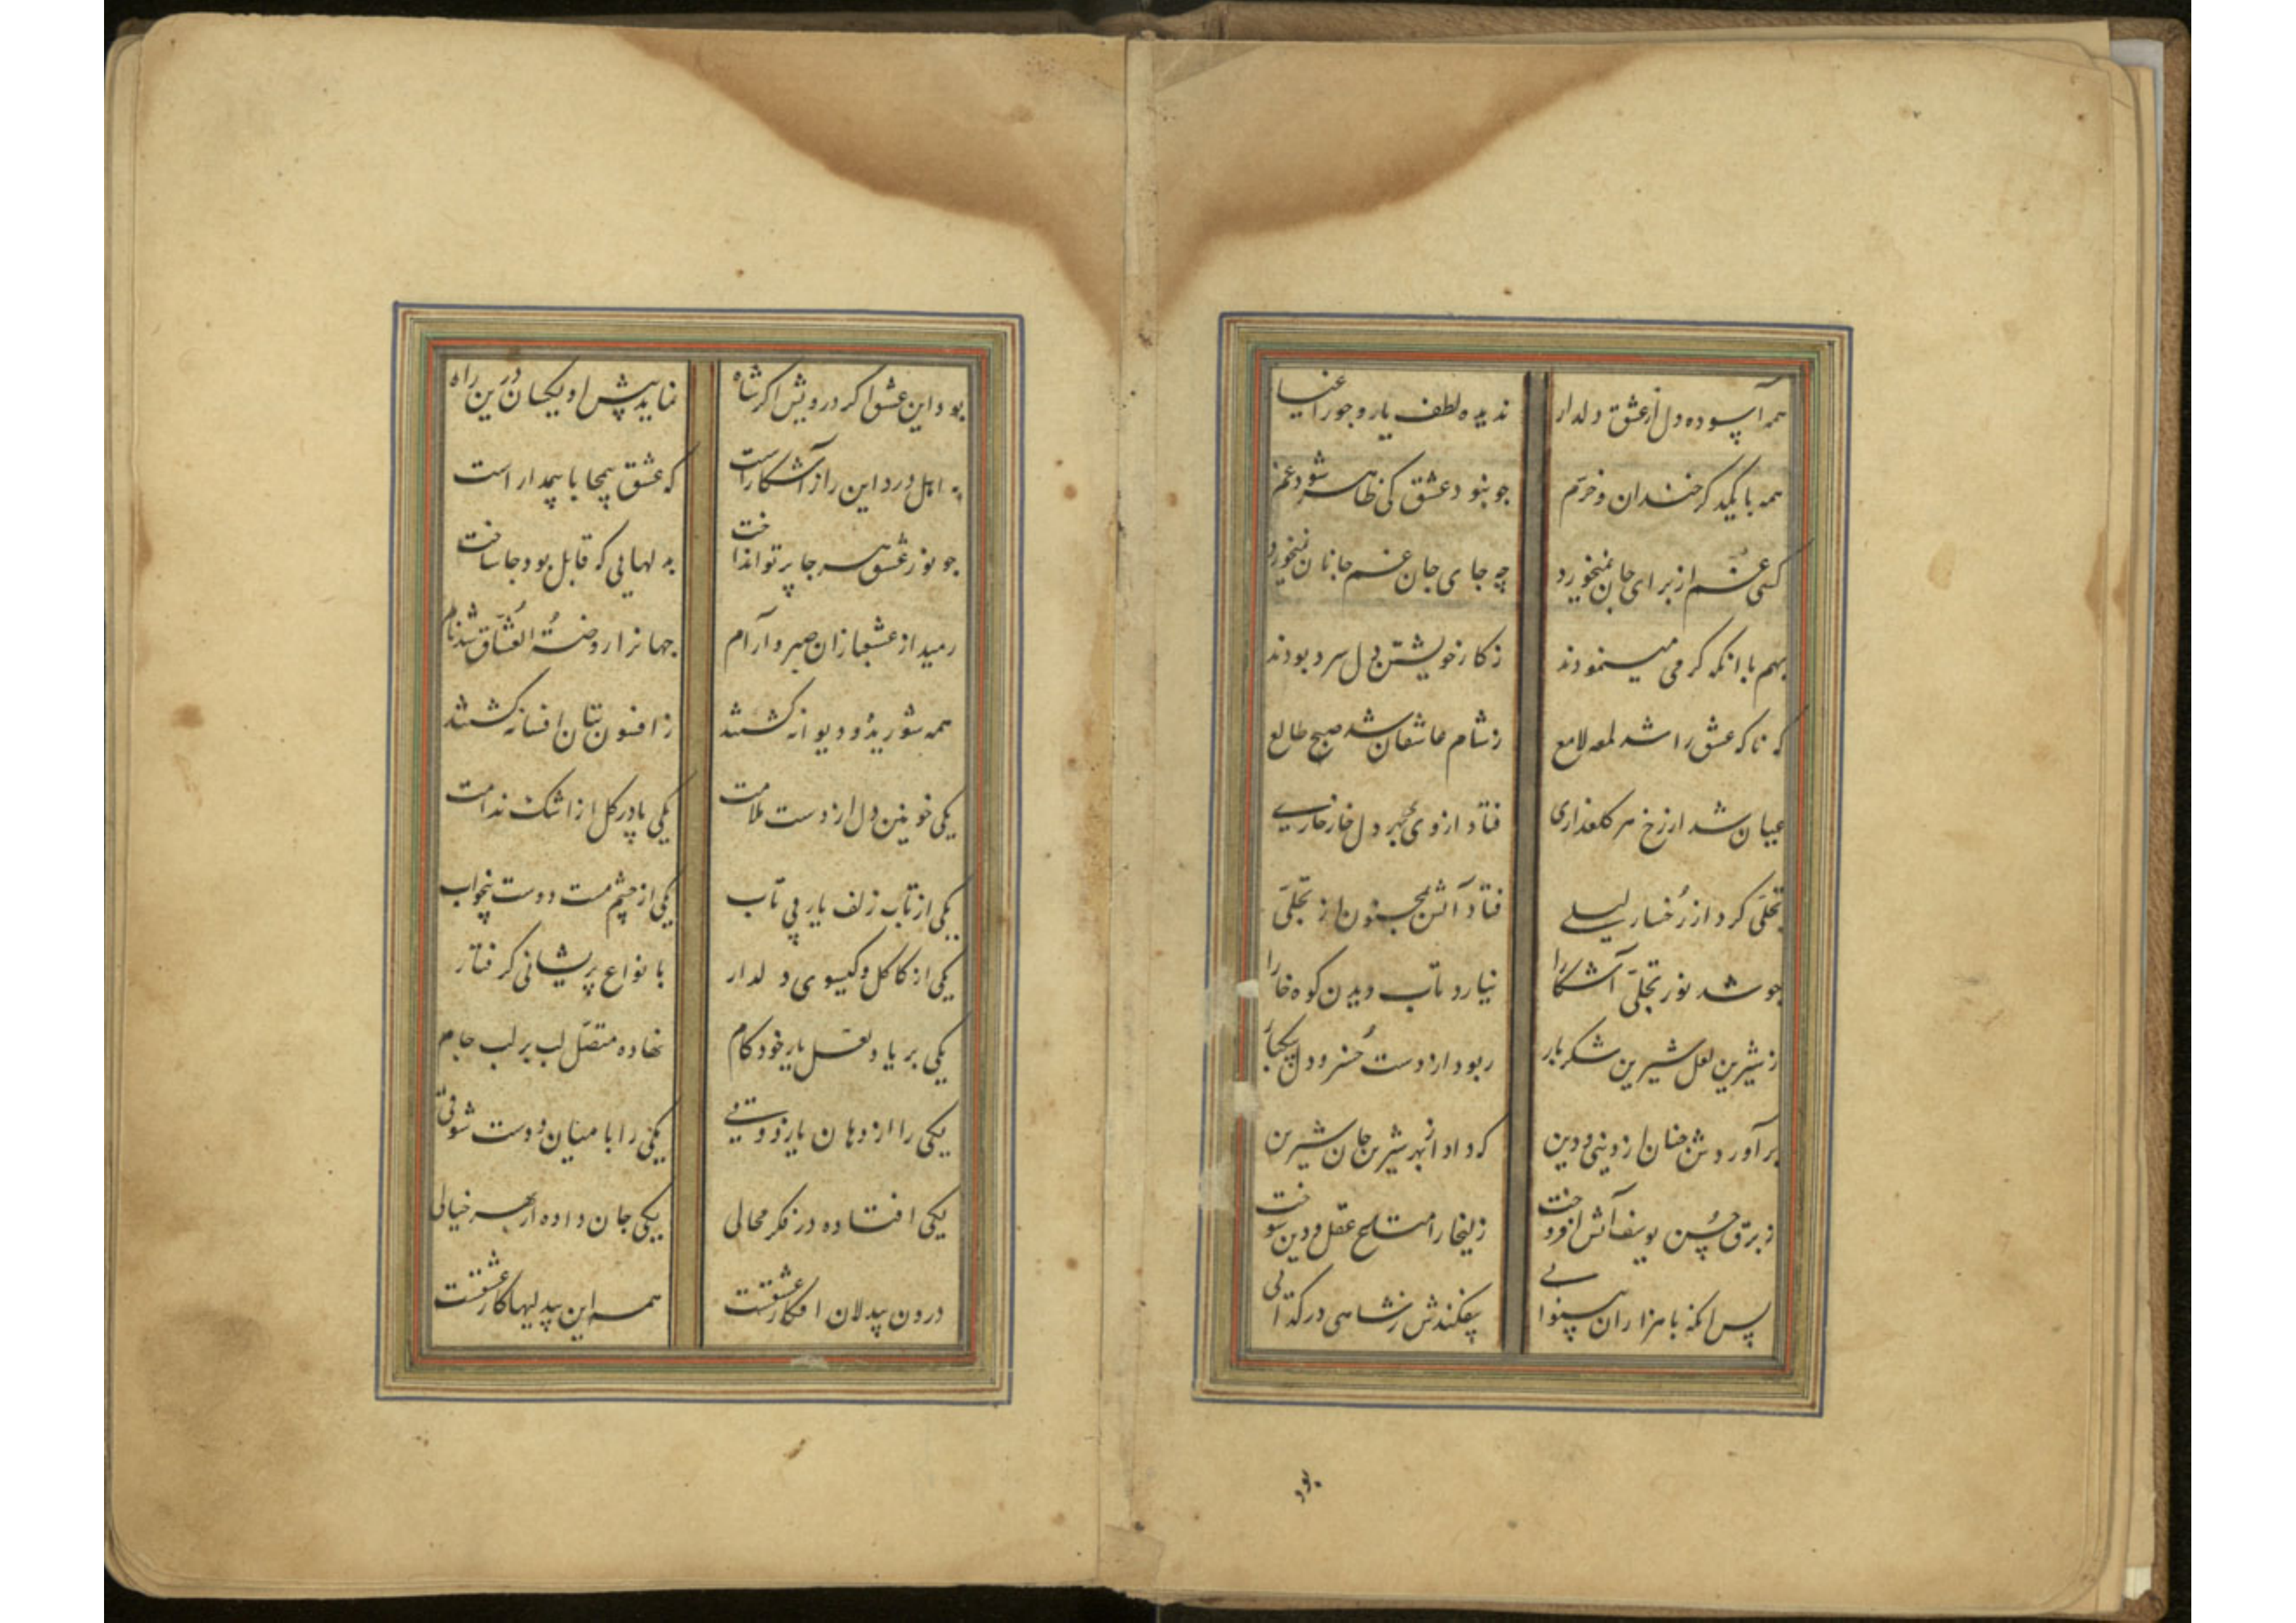 همه آسوده دل از عشق دلدار ندیده لطف یار و جور اغیار
همه با یکدگر خندان و خرم چو نبود عشق کی ظاهر شود غم
کسی غم از برای جان نمیخورد چه جای جان غم جانان نمیخورد
بهم با آنکه گرمی مینمودند ز کار خویشتن دل سرد بودند
که ناگه عشق را شد لمعه لامع ز شام عاشقان شد صبح طالع
عیان شد از رخ هر گلعذاری فتاد از وی بهر دل خار خاری
تجلی کرد از رخسار لیلی فتاد آتش بمجنون از تجلی
چو شد نور تجلی آشکارا نیارد تاب دیدن کوه خارا
ز شیرین لعل شیرین شکربار ربود از دست خسرو دل بیکبار
برآوردش چنان از دینی و دین که داد از بهر شیرین جان شیرین
ز برق حسن یوسف آتش افروخت زلیخا را متاع عقل و دین سوخت
پس آنگه با هزاران بینوایی بیفکندش ز شاهی در گدایی
بود
بود این عشق اگر درویش اگر شاه نماید پیش او یکسان درین راه
به اهل درد این راز آشکار است که عشق بیمحابا بیمدار است
چو نور عشق هر جا پرتو انداخت بدلهایی که قابل بود جا ساخت
رمید از عشقبازان صبر و آرام جهانرا روضة العشاق شد نام
همه شوریده و دیوانه گشتند ز افسون بتان افسانه گشتند
یکی خونین دل از دست ملامت یکی پا در گل از اشک ندامت
یکی از تاب زلف یار بی تاب یکی از چشم مست دوست بیخواب
یکی از کاکل و گیسوی دلدار با نواع پریشانی گرفتار
یکی بر یاد لعل یار خودکام نهاده متصل لب بر لب جام
یکی را از دهان یار ذوقی یکی را با میان دوست شوقی
یکی افتاده در فکر محالی یکی جان داده از بهر خیالی
درون بیدلان افکار عشقست همه این بیدلیها کار عشقست